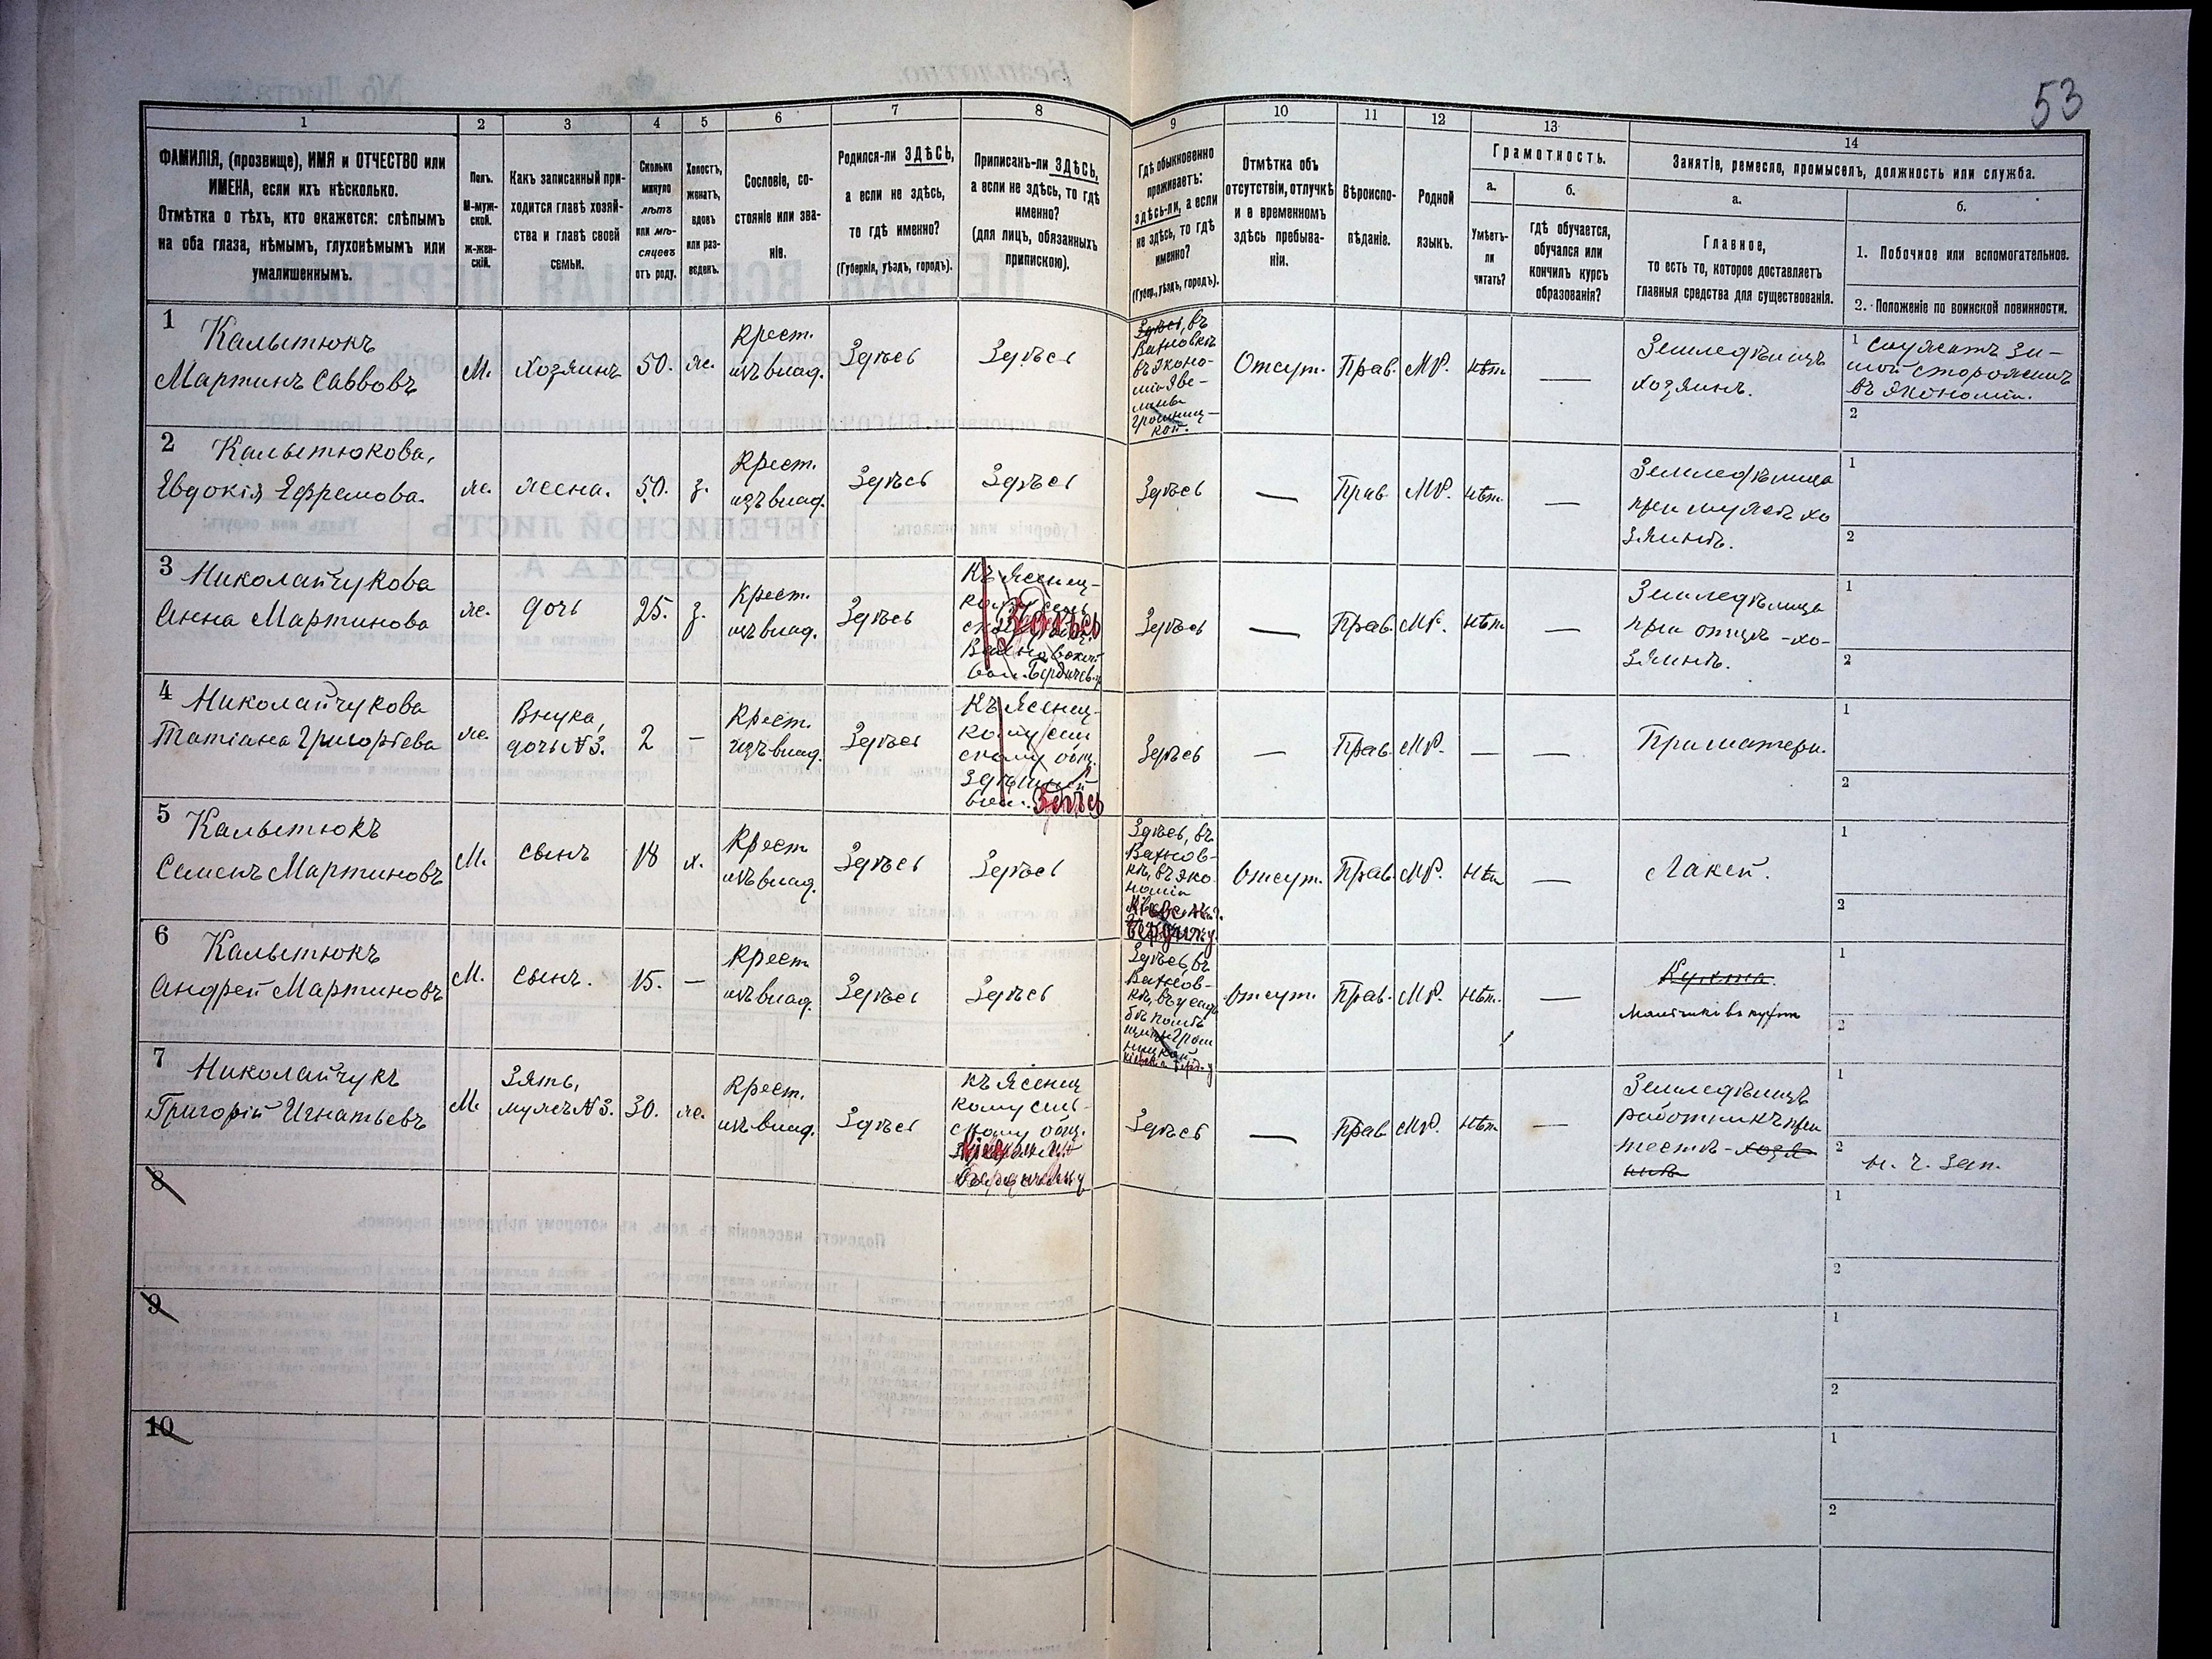 53
1
2
3
4
5
6
7
8
9
10
11
12
13
14
ФАМИЛІЯ, (прозвище), ИМЯ и ОТЧЕСТВО или
ИМЕНА, если ихъ нѣсколько.
Отмѣтка о тѣхъ, кто окажется: слѣпымъ
на оба глаза, нѣмымъ, глухонѣмымъ или
умалишеннымъ.
Полъ.
М-муж-
ской.
ж-жен-
скій.
Какъ записанный при-
ходится главѣ хозяй-
ства и главѣ своей
семьи.
Сколько
минуло
лѣтъ
или мѣ-
сяцевъ
отъ роду.
Холостъ,
женатъ,
вдовъ
или раз-
веденъ.
Сословіе, со-
стояніе или зва-
ніе.
Родился-ли ЗДѢСЬ,
а если не здѣсь,
то гдѣ именно?
(Губернія, уѣздъ, городъ).
Приписанъ-ли ЗДѢСЬ,
а если не здѣсь, то гдѣ
именно?
(для лицъ, обязанныхъ
припискою).
Гдѣ обыкновенно
проживаетъ:
здѣсь-ли, а если
не здѣсь, то гдѣ
именно?
(Губер., уѣздъ, городъ).
Отмѣтка объ
отсутствіи, отлучкѣ
и о временномъ
здѣсь пребыва-
ніи.
Вѣроиспо-
вѣданіе.
Родной
языкъ.
Грамотность.
а.
Умѣетъ-
ли
читать?
б.
гдѣ обучается,
обучался или
кончилъ курсъ
образованія?
Занятіе, ремесло, промыселъ, должность или служба.
а.
Главное,
то есть то, которое доставляетъ
главныя средства для существованія.
б.
1. Побочное или вспомогательное.
2. Положеніе по воинской повинности.
1
Калытюкъ
Мартинъ Савовъ
М.
хозяинъ
50.
же.
Крест.
изъ влад.
Здѣсь
Здѣсь
Здѣсь, въ
Вахновкѣ
въ эконо-
міи
Отсут.
Прав.
МР.
нѣт
—
Земледѣлецъ
хозяинъ.
1 Служатъ зи-
мой сторожемъ
въ экономіи.
2
2
Калытюкова,
Евдокія Ефремова.
же.
жена.
50.
з.
Крест.
изъ влад.
Здѣсь
Здѣсь
Здѣсь
—
Прав
МР.
нѣт.
—
Земледѣлица
при мужѣ хо
зяинѣ.
1
2
3
Николайчукова
Анна Мартинова
же.
дочь
25.
з.
Крест.
изъ влад.
Здѣсь
Къ Ясенец-
кому сель
Здѣсь
Вахновской
вол. Бердичев. у
Здѣсь
—
Прав.
МР.
нѣт
—
Земледѣлица
при отцѣ-хо-
зяинѣ.
1
2
4
Николайчукова
Татіана Григорьева
же.
Внука,
дочь N3.
2
—
Крест.
изъ влад.
Здѣсь
Къ Ясенец-
кому сель
скому общ.
Здѣшней
вол. Здѣсь
Здѣсь
—
Прав.
МР.
—
—
При матери.
1
2
5
Калытюкъ
Семенъ Мартиновъ
М.
сынъ
18
х.
Крест
изъ влад.
Здѣсь
Здѣсь
Здѣсь, въ
Вахнов-
кѣ, въ эко
номіи
Отсут.
Прав.
МР.
нѣт
—
Лакей.
1
2
6
Калытюкъ
Андрей Мартиновъ
М.
сынъ.
15.
—
Крест
изъ влад.
Здѣсь
Здѣсь
Здѣсь, въ
Вахнов-
кѣ, въ усад
Отсут.
Прав.
МР.
нѣт.
—
Кухня.
Мальчикъ въ кухнѣ
1
2
7
Николайчукъ
Григорій Игнатьевъ
М.
Зять,
мужъ N3.
30.
же.
Крест.
изъ влад.
Здѣсь
Къ Ясенец
кому сель-
скому общ.
Здѣсь
—
Прав
МР.
нѣт
—
Земледѣлецъ
работникъ при
тестѣ-хозя
инѣ
1
2
н. ч. зап.
8
1
2
9
1
2
10
1
2